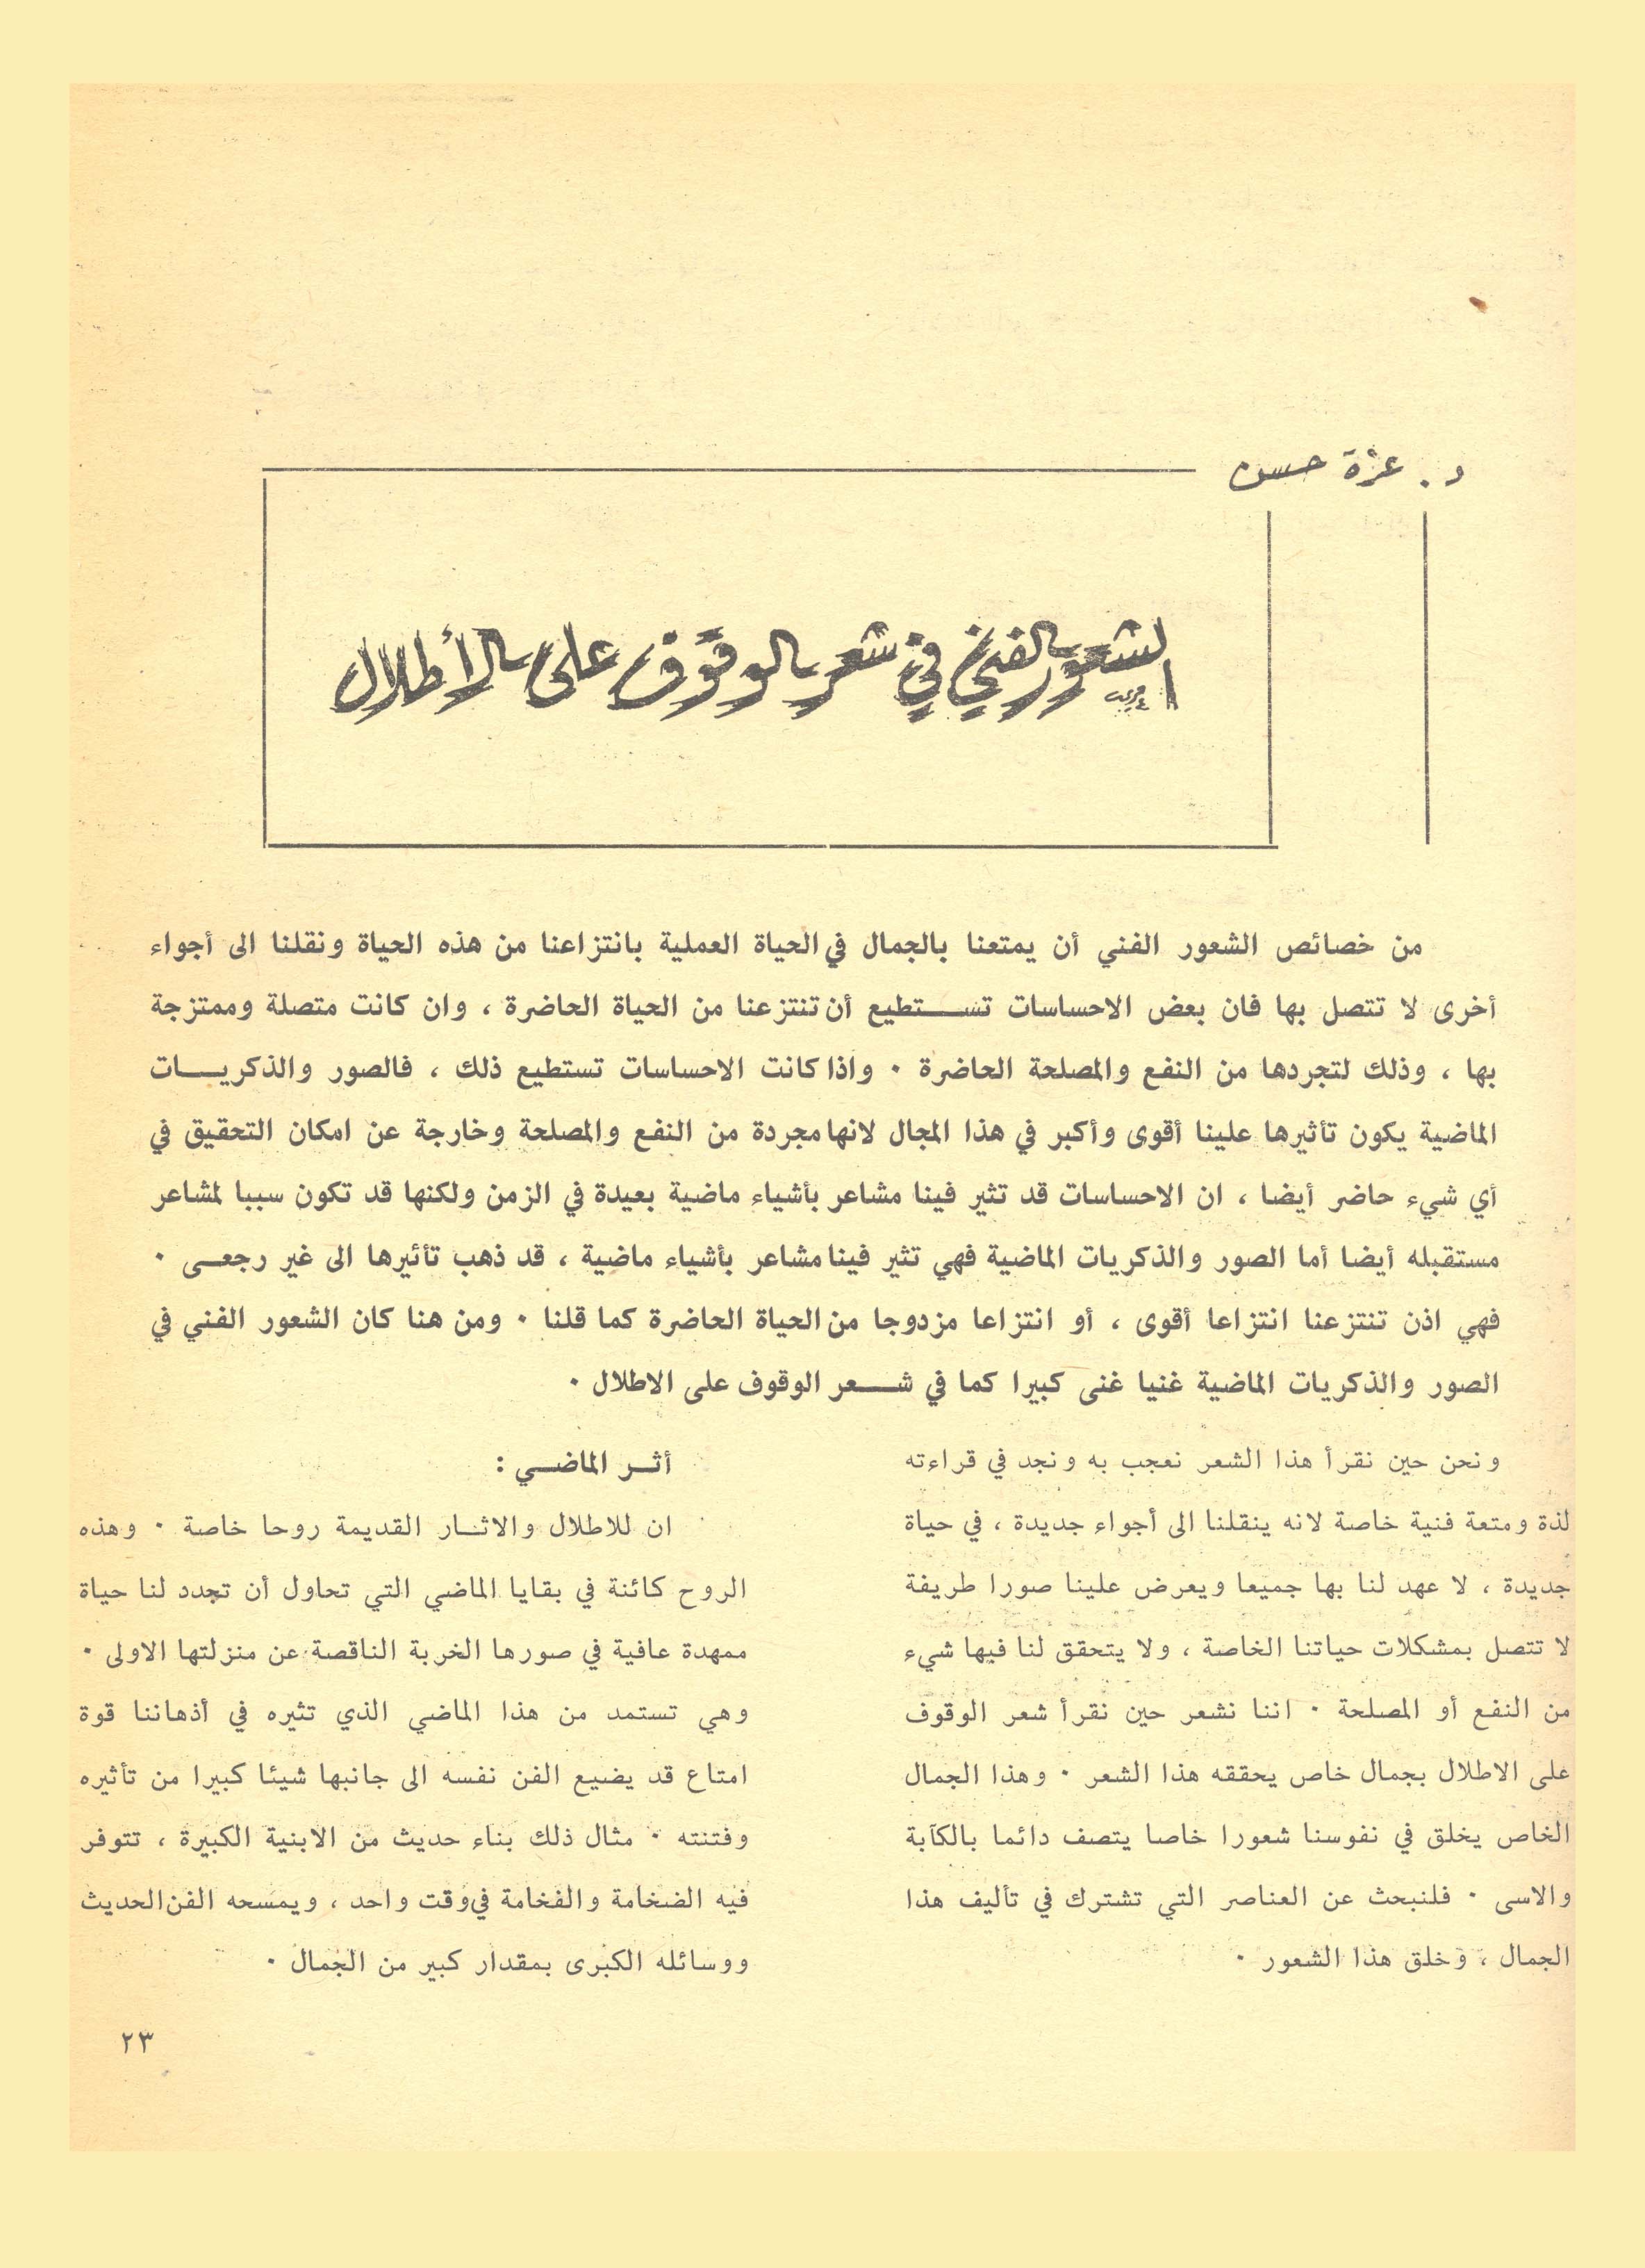 د. عزة حسن
الشعور الفني في شعر الوقوف على الأطلال
من خصائص الشعور الفني أن يمتعنا بالجمال في الحياة العملية بانتزاعنا من هذه الحياة ونقلنا الى أجواء
أخرى لا تتصل بها فان بعض الاحساسات تستطيع أن تنتزعنا من الحياة الحاضرة ، وان كانت متصلة وممتزجة
بها ، وذلك لتجردها من النفع والمصلحة الحاضرة ٠ واذا كانت الاحساسات تستطيع ذلك ، فالصور والذكريات
الماضية يكون تأثيرها علينا أقوى وأكبر في هذا المجال لانها مجردة من النفع والمصلحة وخارجة عن امكان التحقيق في
أي شيء حاضر أيضا ، ان الاحساسات قد تثير فينا مشاعر بأشياء ماضية بعيدة في الزمن ولكنها قد تكون سببا لمشاعر
مستقبله أيضا أما الصور والذكريات الماضية فهي تثير فينا مشاعر بأشياء ماضية ، قد ذهب تأثيرها الى غير رجعى ٠
فهي اذن تنتزعنا انتزاعا أقوى ، أو انتزاعا مزدوجا من الحياة الحاضرة كما قلنا ٠ ومن هنا كان الشعور الفني في
الصور والذكريات الماضية غنيا غنى كبيرا كما في شعر الوقوف على الاطلال ٠
ونحن حين نقرأ هذا الشعر نعجب به ونجد في قراءته
لذة ومتعة فنية خاصة لانه ينقلنا الى أجواء جديدة ، في حياة
جديدة ، لا عهد لنا بها جميعا ويعرض علينا صورا طريفة
لا تتصل بمشكلات حياتنا الخاصة ، ولا يتحقق لنا فيها شيء
من النفع أو المصلحة ٠ اننا نشعر حين نقرأ شعر الوقوف
على الاطلال بجمال خاص يحققه هذا الشعر ٠ وهذا الجمال
الخاص يخلق في نفوسنا شعورا خاصا يتصف دائما بالكآبة
والاسى ٠ فلنبحث عن العناصر التي تشترك في تأليف هذا
الجمال ، وخلق هذا الشعور ٠
أثر الماضي :
ان للاطلال والاثار القديمة روحا خاصة ٠ وهذه
الروح كائنة في بقايا الماضي التي تحاول أن تجدد لنا حياة
ممهدة عافية في صورها الخربة الناقصة عن منزلتها الاولى ٠
وهي تستمد من هذا الماضي الذي تثيره في أذهاننا قوة
امتاع قد يضيع الفن نفسه الى جانبها شيئا كبيرا من تأثيره
وفتنته ٠ مثال ذلك بناء حديث من الابنية الكبيرة ، تتوفر
فيه الضخامة والفخامة في وقت واحد ، ويمسحه الفن الحديث
ووسائله الكبرى بمقدار كبير من الجمال ٠
٢٣